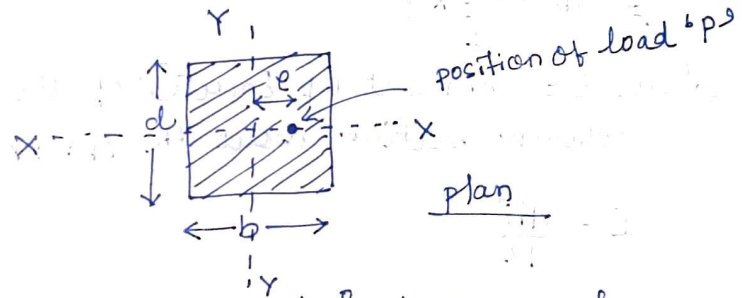 Y
position of load 'p'
e
d
X
X
plan
b
Y